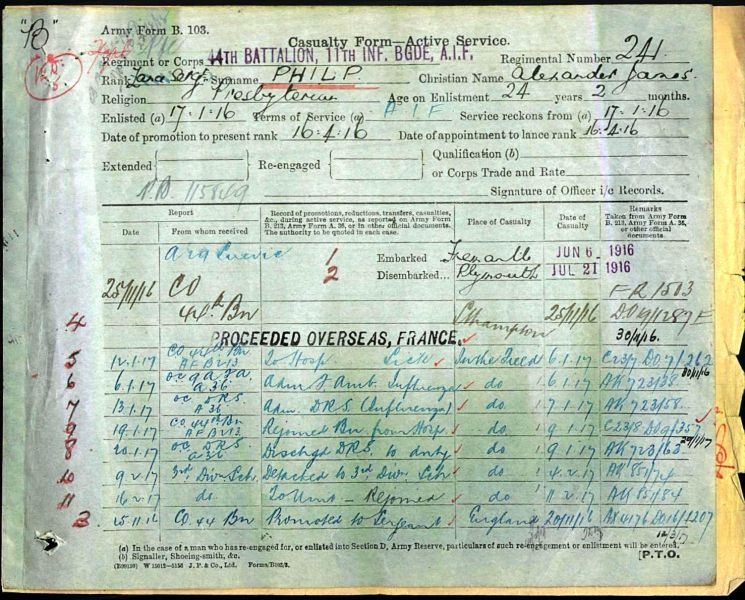 "B"
Army Form B. 103.
Casualty Form—Active Service.
Regiment or Corps 44TH BATTALION, 11TH INF. BGDE, A.I.F. Regimental Number 241
Rank Surname PHILP Christian Name Alexander James
Religion Presbyterian Age on Enlistment 24 years 2 months.
Enlisted (a) 17·1·16 Terms of Service (a) A I F Service reckons from (a) 17·1·16
Date of promotion to present rank 16·4·16 Date of appointment to lance rank 16·4·16
Extended Re-engaged Qualification (b)
or Corps Trade and Rate
Signature of Officer i/c Records.
Report
Date From whom received
Record of promotions, reductions, transfers, casualties, &c., during active service, as reported on Army Form B. 213, Army Form A. 36, or in other official documents. The authority to be quoted in each case.
Place of Casualty
Date of Casualty
Remarks
Taken from Army Form B. 213, Army Form A. 36, or other official documents.
1 Embarked Fremantle JUN 6 1916
2 Disembarked Plymouth JUL 21 1916
25/11/16 CO 44th Bn S'hampton 25/11/16
4 PROCEEDED OVERSEAS, FRANCE. 30/11/16
5 12.1.17 CO 44th Bn AF B213 To Hosp. Sick In the Field 6.1.17
6 6.1.17 A36 Adm F. Amb. Influenza do 6.1.17 AK 723/38
7 13.1.17 OC DRS A36 Adm. DRS (Influenza) do 7.1.17 AK 723/58
8 19.1.17 CO 44th Bn AF B213 Rejoined Bn from Hosp. do 9.1.17
9 20.1.17 OC DRS A36 Dischgd DRS to duty do 9.1.17 AK 723/63
10 9.2.17 3rd Div Sch. Detached to 3rd Div Sch do 4.2.17 AK 85/74
11 16.2.17 do To Unit – Rejoined do 11.2.17 AK 85/84
3 25.11.16 CO 44 Bn Promoted to Sergeant England 20/11/16
(a) In the case of a man who has re-engaged for, or enlisted into Section D, Army Reserve, particulars of such re-engagement or enlistment will be entered.
(b) Signaller, Shoeing-smith, &c.
[P.T.O.